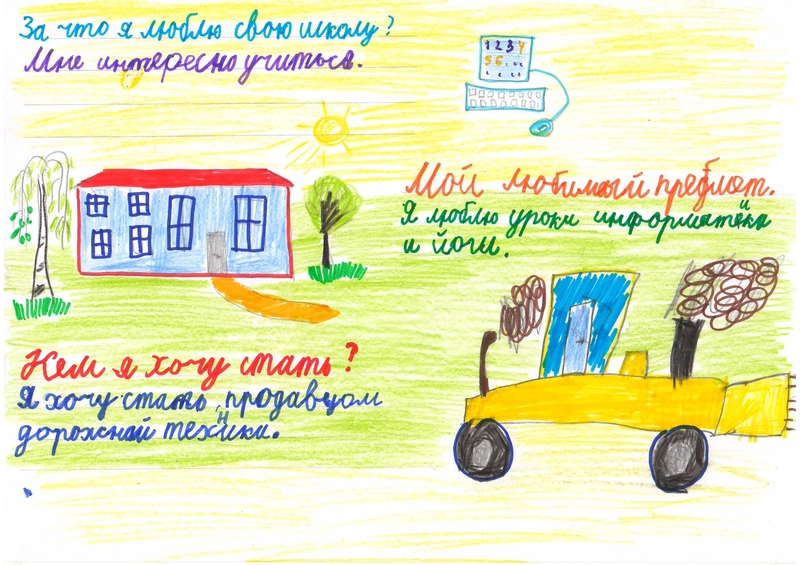 За что я люблю свою школу?
Мне интересно учиться.
1 2 3 4
5 6
Мой любимый предмет.
Я люблю уроки информатики
и йоги.
Кем я хочу стать?
Я хочу стать продавцом
дорожной техники.